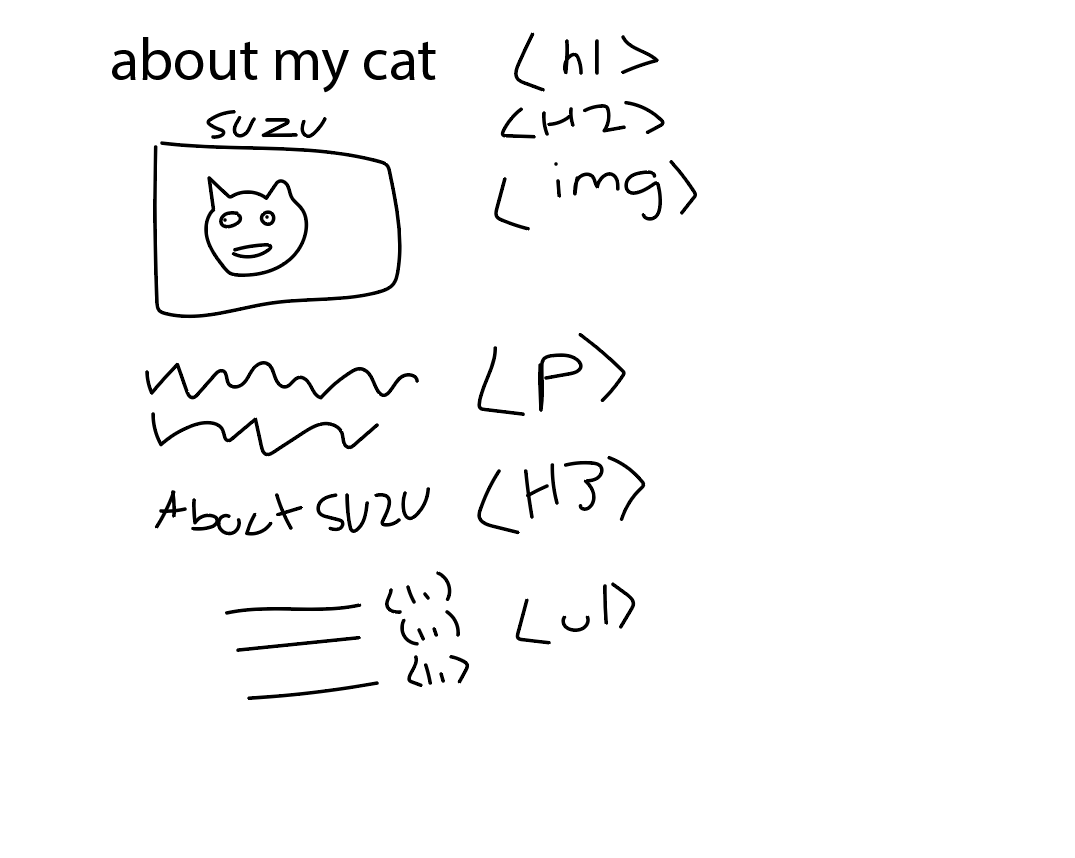 about my cat <h1>
SUZU <H2>
<img>
<P>
About SUZU <H3>
<li>
<li> <ul>
<li>